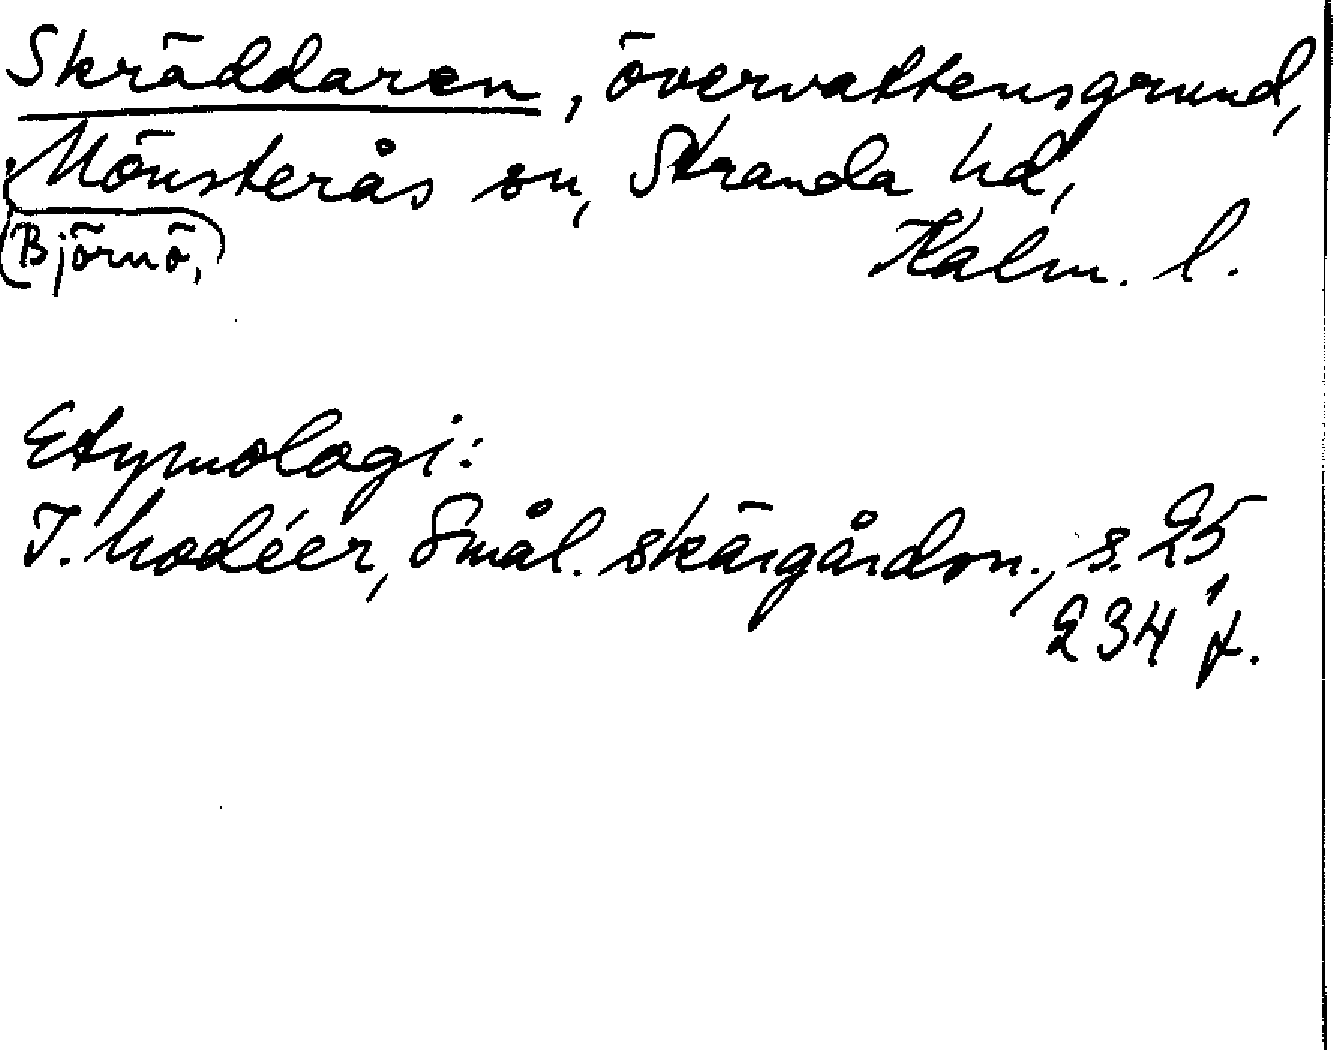 Skräddaren, övervattensgrund,
Mönsterås sn, Stranda hd,
Björnö, Kalm. l.
Etymologi:
I. Modéer, Smål. skärgårdsn., s. 25,
234 f.